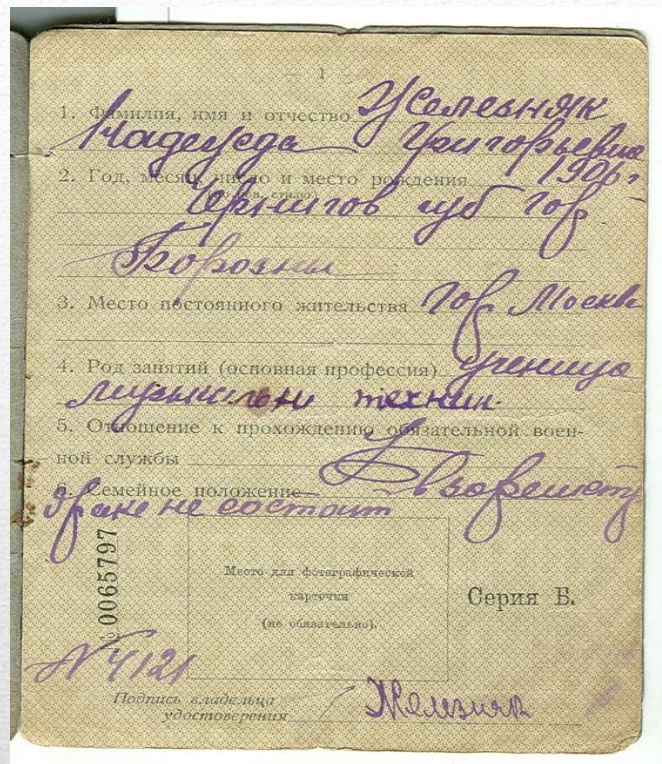 — 1 —
1. Фамилия, имя и отчество Железняк
Надежда Григорьевна
2. Год, месяц, число и место рождения 1906 г
Чернигов губ гор
Борозны
3. Место постоянного жительства гор Москва
4. Род занятий (основная профессия) ученица
музыкальн техник.
5. Отношение к прохождению обязательной воен-
ной службы
6. Семейное положение В зарегистр
браке не состоит
№ 0065797
Место для фотографической
карточки
(не обязательно).
Серия Б.
N 4121
Подпись владельца
удостоверения Железняк